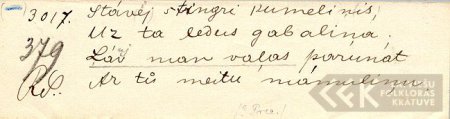 3017. Stāvēj stingri kumelinis,
Uz ta ledus gabaliņa.
379 Ļaĵ man vaļas parunāt
Rd. Ar tū meitu māmuliņu.
LATVIEŠU
FOLKLORAS
KRĀTUVE